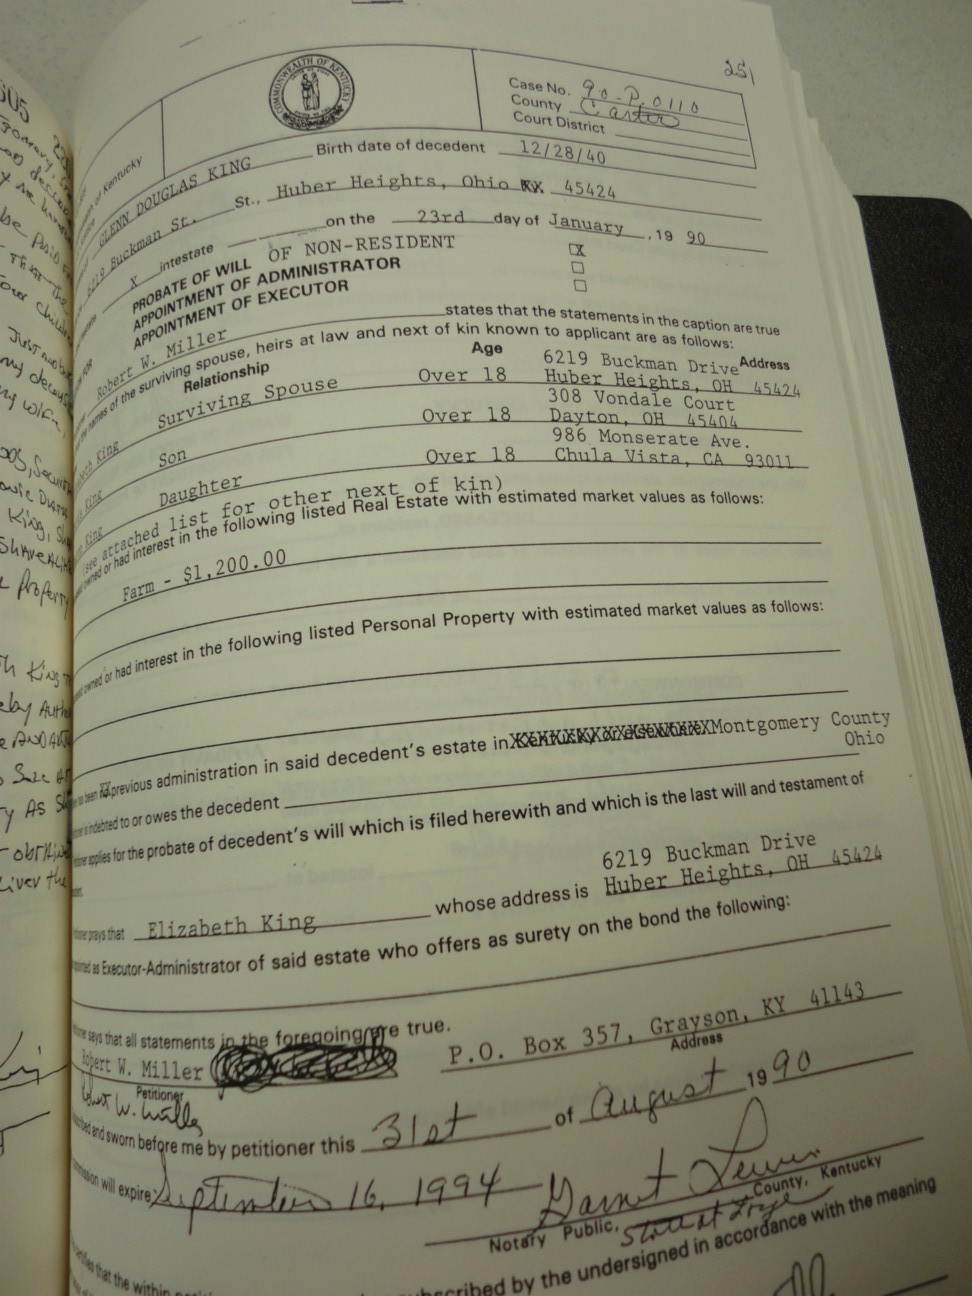 251
COMMONWEALTH OF KENTUCKY
Case No. 90-P-0110
County Carter
Court District
of Kentucky
GLENN DOUGLAS KING Birth date of decedent 12/28/40
6219 Buckman St. St., Huber Heights, Ohio XX 45424
X intestate on the 23rd day of January, 19 90
PROBATE OF WILL OF NON-RESIDENT X
APPOINTMENT OF ADMINISTRATOR
APPOINTMENT OF EXECUTOR
Robert W. Miller states that the statements in the caption are true
names of the surviving spouse, heirs at law and next of kin known to applicant are as follows:
Relationship Age Address
King Surviving Spouse Over 18 6219 Buckman Drive
Huber Heights, OH 45424
King Son Over 18 308 Vondale Court
Dayton, OH 45404
King Daughter Over 18 986 Monserate Ave.
Chula Vista, CA 93011
(see attached list for other next of kin)
owned or had interest in the following listed Real Estate with estimated market values as follows:
Farm - $1,200.00
owned or had interest in the following listed Personal Property with estimated market values as follows:
has been previous administration in said decedent's estate in Montgomery County
Ohio
is indebted to or owes the decedent
applies for the probate of decedent's will which is filed herewith and which is the last will and testament of
prays that Elizabeth King whose address is 6219 Buckman Drive
Huber Heights, OH 45424
as Executor-Administrator of said estate who offers as surety on the bond the following:
says that all statements in the foregoing are true.
Robert W. Miller P.O. Box 357, Grayson, KY 41143
Petitioner Address
Robert W. Miller
and sworn before me by petitioner this 31st of August 19 90
will expire September 16, 1994
Notary Public, State at Large County, Kentucky
that the within subscribed by the undersigned in accordance with the meaning